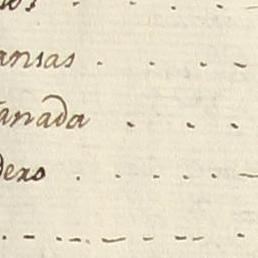 ansas
anada
dero